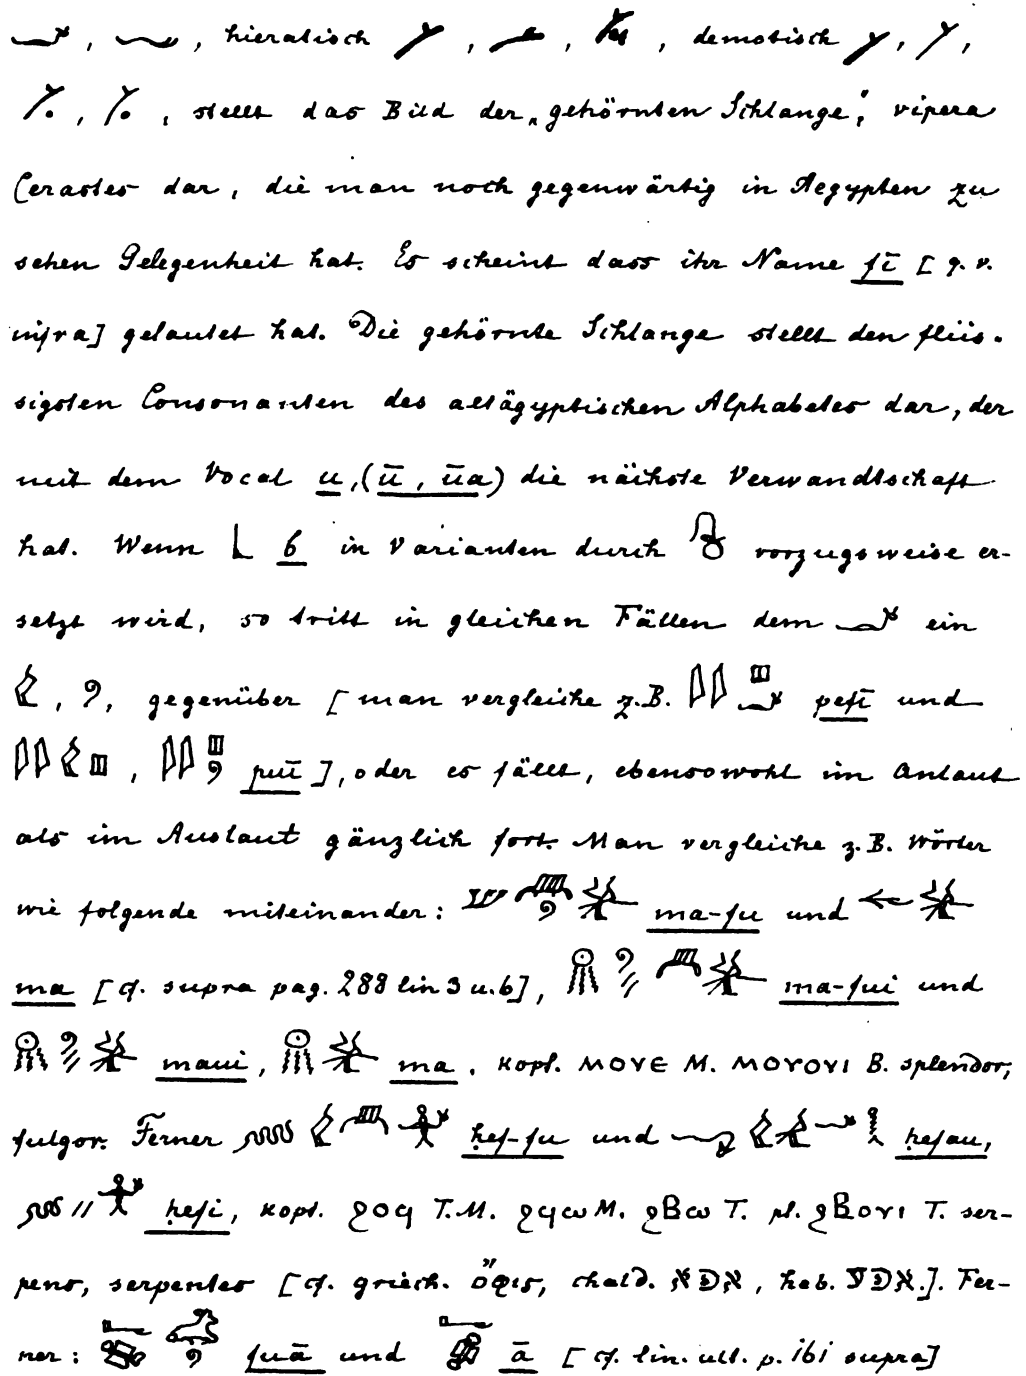 𓆑, 𓆓, hieratisch , , , demotisch , ,
, , stellt das Bild der „gehörnten Schlange“, vipera
Cerastes dar, die man noch gegenwärtig in Aegypten zu
sehen Gelegenheit hat. Es scheint dass ihr Name fī [q. v.
infra] gelautet hat. Die gehörnte Schlange stellt den flüs-
sigsten Consonanten des altägyptischen Alphabetes dar, der
mit dem Vocal u, (ū, ūa) die nächste Verwandtschaft
hat. Wenn 𓃀 b in Varianten durch vorzugsweise er-
setzt wird, so tritt in gleichen Fällen dem 𓆑 ein
, 𓏲, gegenüber [man vergleiche z. B. 𓇌𓊪𓆑 pefī und
𓇌 𓊪, 𓇌𓊪𓏲 puī], oder es fällt, ebensowohl im Anlaut
als im Auslaut gänzlich fort. Man vergleiche z. B. Wörter
wie folgende miteinander: ma-fu und
ma [cf. supra pag. 288 lin 3 u. 6], ma-fui und
maui, ma, kopt. ⲙⲟⲩⲉ M. ⲙⲟⲩⲟⲩⲓ B. splendor,
fulgor. Ferner ḥef-fu und ḥefau,
ḥefi, kopt. ϩⲟϥ T. M. ϩϥⲱ M. ϩⲃⲱ T. pl. ϩⲃⲟⲩⲓ T. ser-
pens, serpentes [cf. griech. ὄφις, chald. אפא, heb. אפע.]. Fer-
ner: fuā und ā [cf. lin. ult. p. ibi supra]